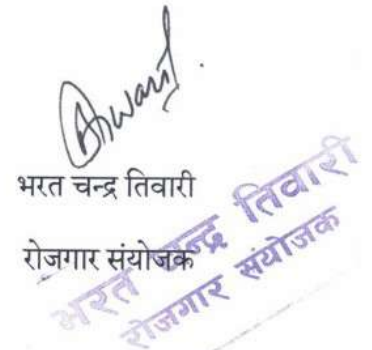 भरत चन्द्र तिवारी
रोजगार संयोजक
भरत चन्द्र तिवारी
रोजगार संयोजक